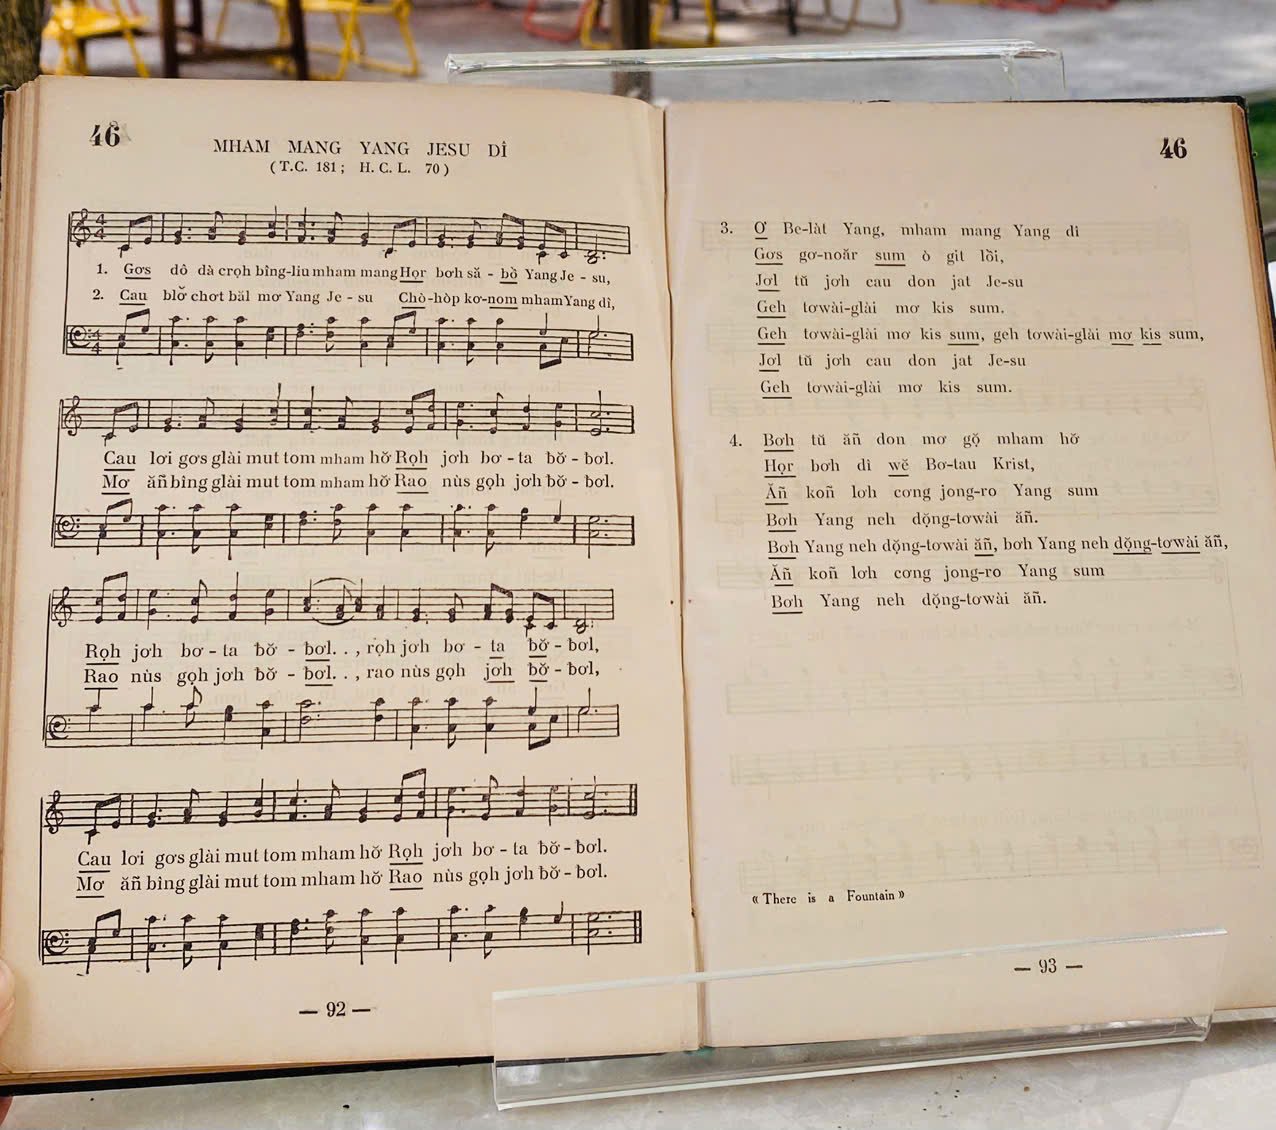 46
MHAM MANG YANG JESU DÎ
(T.C. 181; H.C.L. 70)
1. Gơs dô dà crọh bìng-liu mham mang Họr bơh să - bò Yang Je - su,
2. Cau blơ̆ chơt băl mơ Yang Je - su Chò-hòp kơ-nom mham Yang dì,
Cau lơi gơs glài mut tom mham hơ̆ Rọh jơh bơ - ta bơ̆ - bơl.
Mơ ăñ bìng glài mut tom mham hơ̆ Rao nùs gọh jơh bơ̆ - bơl.
Rọh jơh bơ - ta bơ̆ - bơl. . , rọh jơh bơ - ta bơ̆ - bơl,
Rao nùs gọh jơh bơ̆ - bơl. . , rao nùs gọh jơh bơ̆ - bơl,
Cau lơi gơs glài mut tom mham hơ̆ Rọh jơh bơ - ta bơ̆ - bơl.
Mơ ăñ bìng glài mut tom mham hơ̆ Rao nùs gọh jơh bơ̆ - bơl.
— 92 —
46
3. Ơ Be-làt Yang, mham mang Yang dì
Gơs gơ-noăr sum ò git lồi,
Jơl tŭ jơh cau don jat Je-su
Geh tơwài-glài mơ kis sum.
Geh tơwài-glài mơ kis sum, geh tơwài-glài mơ kis sum,
Jơl tŭ jơh cau don jat Je-su
Geh tơwài-glài mơ kis sum.
4. Bơh tŭ ăñ don mơ gộ mham hơ̆
Họr bơh dì wĕ Bơ-tau Krist,
Ăñ koñ lơh cơng jong-ro Yang sum
Bơh Yang neh dộng-tơwài ăñ.
Bơh Yang neh dộng-tơwài ăñ, bơh Yang neh dộng-tơwài ăñ,
Ăñ koñ lơh cơng jong-ro Yang sum
Bơh Yang neh dộng-tơwài ăñ.
« There is a Fountain »
— 93 —